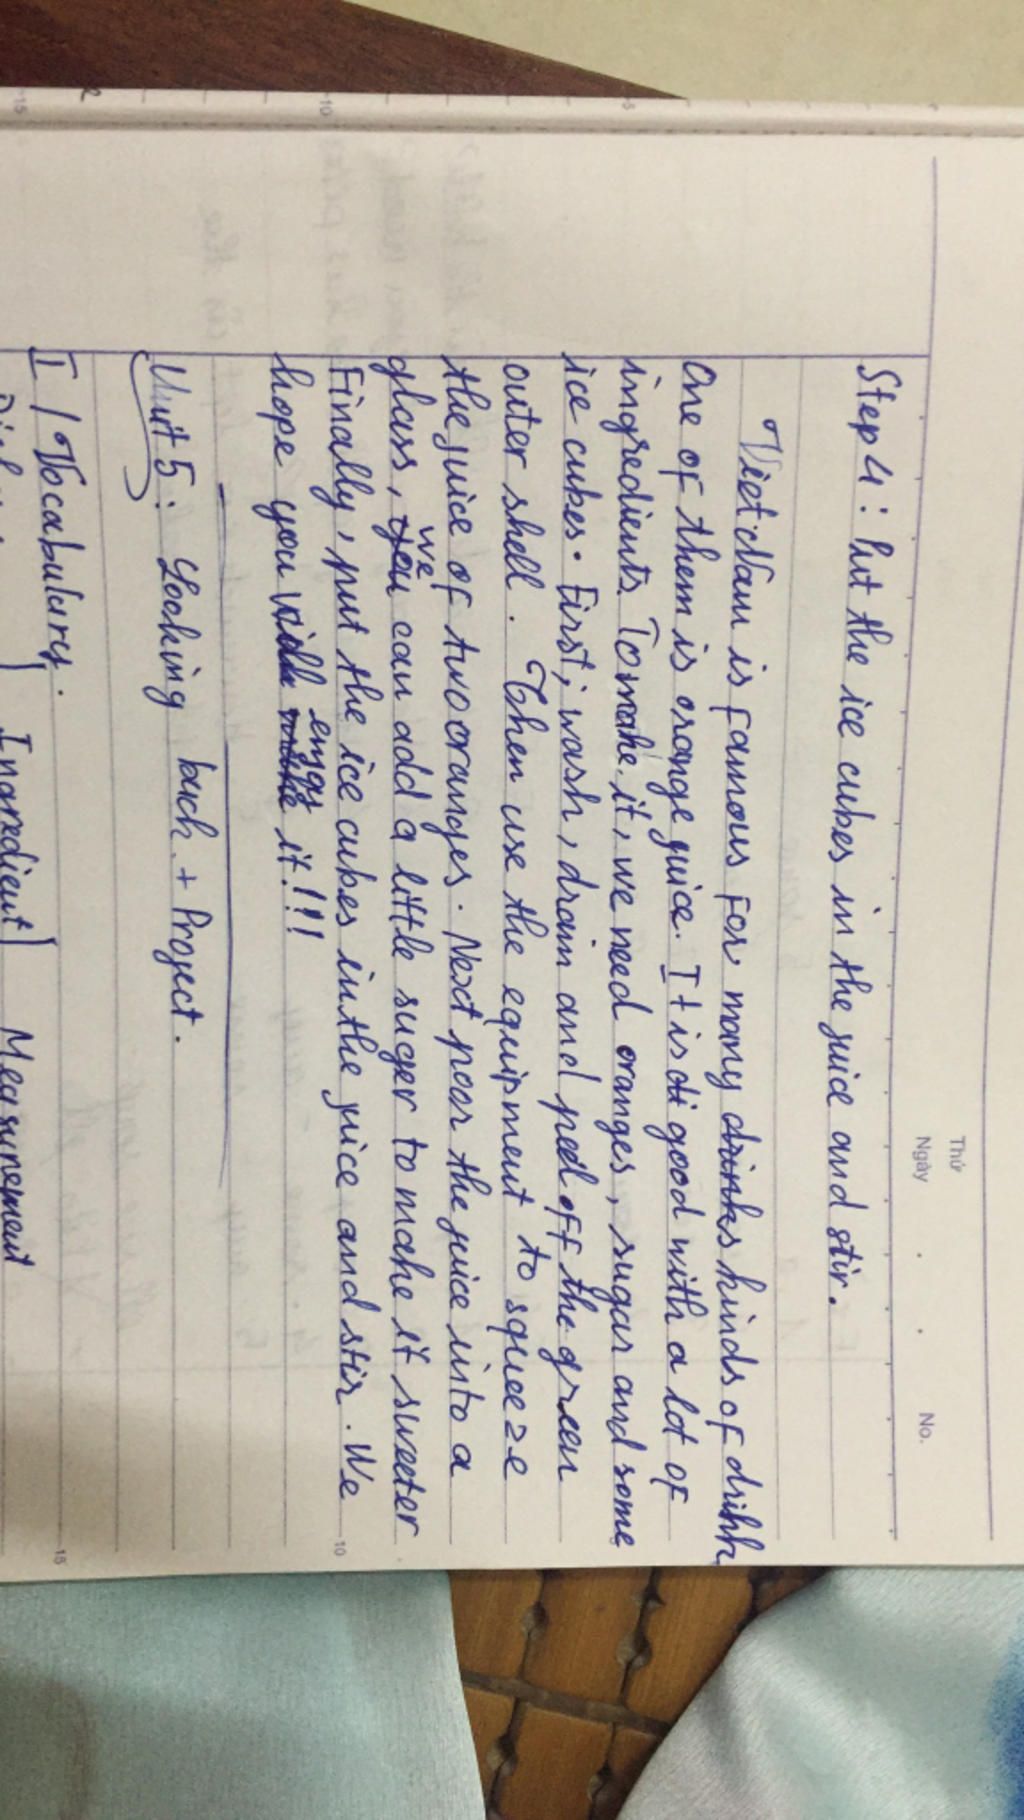 Thứ
Ngày . . No.
Step 4 : Put the ice cubes in the juice and stir.
Viet Nam is famous for many drinks kinds of drink
One of them is orange juice. It is di good with a lot of
ingredients. To make it, we need oranges, sugar and some
ice cubes. First, wash, drain and peel off the green
outer shell. Then use the equipment to squeeze
the juice of two oranges. Next poor the juice into a
glass, you we can add a little suger to make it sweeter
Finally, put the ice cubes in the juice and stir. We
hope you will engy it!!!
Unit 5 : Looking back + Project.
I / Vocabulary.
Ingredient Measurement
5
10
15
10
15